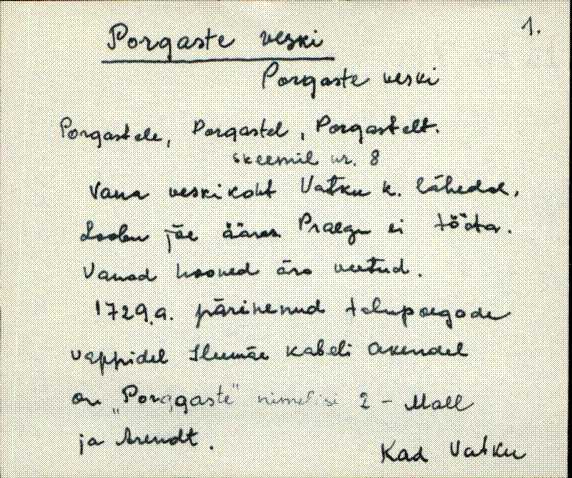 1.
Porgaste veski
Porgaste veski
Porgastele, Porgastel, Porgastelt.
skeemil nr. 8
Vana veskikoht Vatku k. lähedal,
Loobu jõe ääres Praegu ei tööta.
Vanad hooned ära veetud.
1729.a. pärinenud talupoegade
vappidel Ilumäe kabeli akendel
on "Porggaste" nimelisi 2 - Mall
ja Arendt.
Kad Vatku